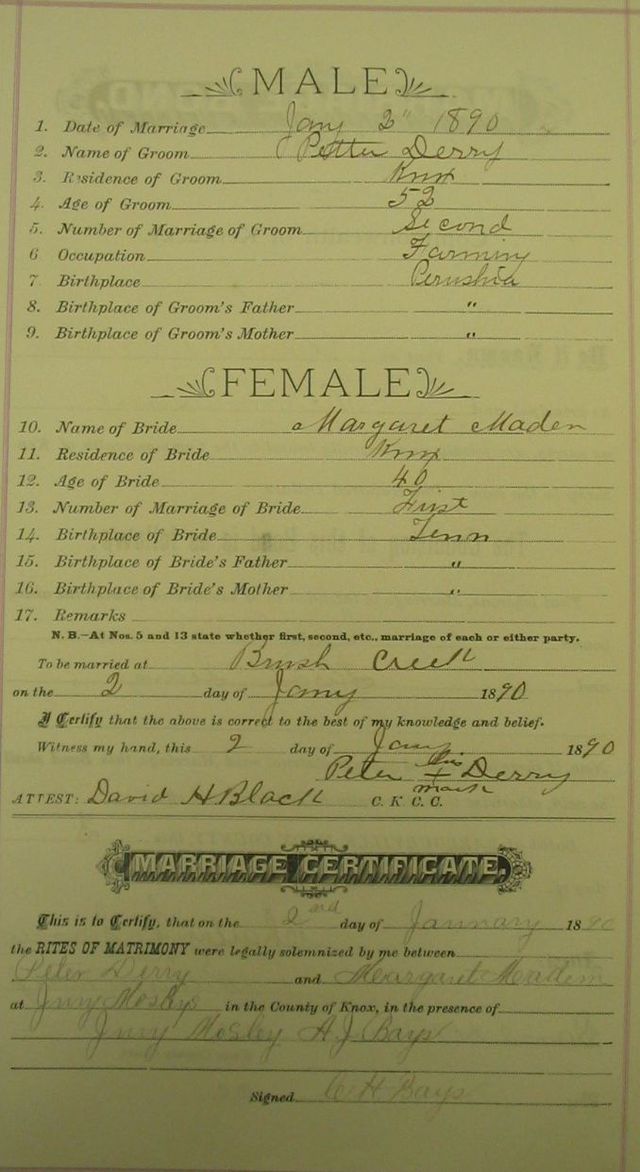 MALE
1. Date of Marriage Jany 2" 1890
2. Name of Groom Petter Derry
3. Residence of Groom Knox
4. Age of Groom 52
5. Number of Marriage of Groom Second
6 Occupation Farming
7. Birthplace Perushia
8. Birthplace of Groom's Father "
9. Birthplace of Groom's Mother "
FEMALE
10. Name of Bride Margaret Maden
11. Residence of Bride Knox
12. Age of Bride 40
13. Number of Marriage of Bride First
14. Birthplace of Bride Tenn
15. Birthplace of Bride's Father "
16. Birthplace of Bride's Mother "
17. Remarks
N. B.—At Nos. 5 and 13 state whether first, second, etc., marriage of each or either party.
To be married at Brush Creek
on the 2 day of Jany 1890
I Certify that the above is correct to the best of my knowledge and belief.
Witness my hand, this 2 day of Jany 1890
Peter his + mark Derry
ATTEST: David H Black C. K C. C.
MARRIAGE CERTIFICATE.
This is to Certify, that on the 2nd day of January 1890
the RITES OF MATRIMONY were legally solemnized by me between
Peter Derry and Margaret Madem
at Mosleys in the County of Knox, in the presence of
Mosley A J Bays
Signed H Bays